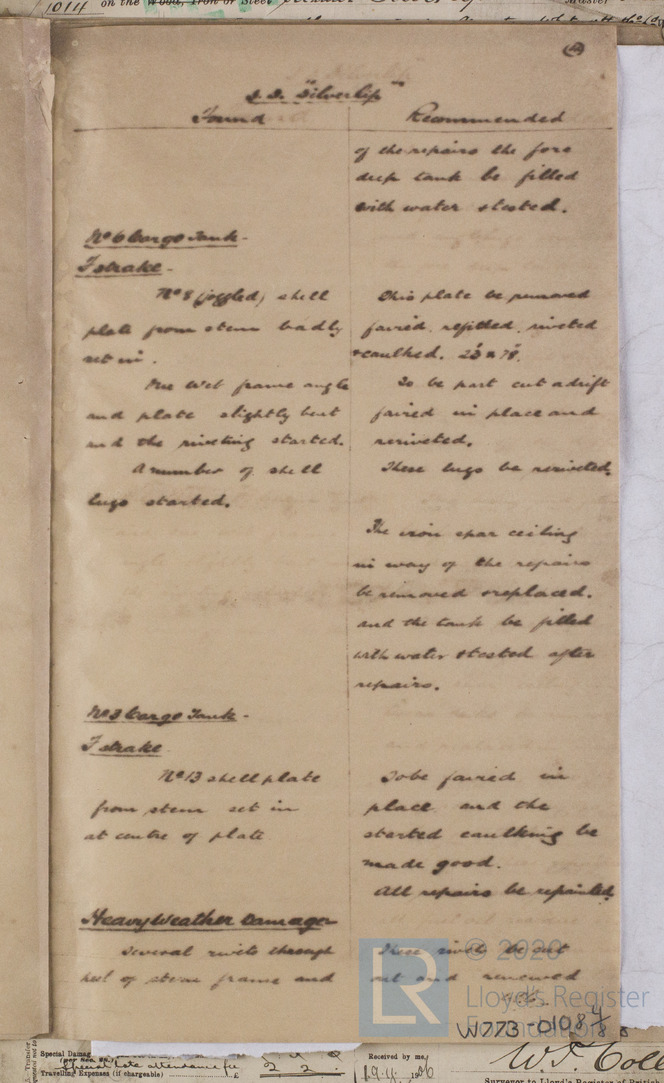 1014 on the Wood, Iron or Steel
Master
S.S. "Silverlip"
Found
Recommended
of the repairs the fore
deep tank be filled
with water & tested.
No 6 Cargo Tank -
I strake -
No 8 (joggled) shell
plate from stem badly
set in.
This plate be removed
faired, refitted, riveted
& caulked.
One Web frame angle
and plate slightly bent
and the riveting started.
To be part cut adrift
faired in place and
reriveted.
A number of shell
lugs started.
These lugs be reriveted.
The iron spar ceiling
in way of the repairs
be removed & replaced.
and the tank be filled
with water & tested after
repairs.
No 3 Cargo Tank -
I strake
No 13 shell plate
from stem set in
at centre of plate
To be faired in
place and the
started caulking be
made good.
All repairs be repainted.
Heavy Weather Damage
Several rivets through
heel of stern frame and
These rivets be cut
out and renewed
© 2020
Lloyd's Register
Foundation
W773-0108
Special Damage
Special late attendance fee
Travelling Expenses (if chargeable) £
Received by me,
19.11.1906
Surveyor to Lloyd's Register of